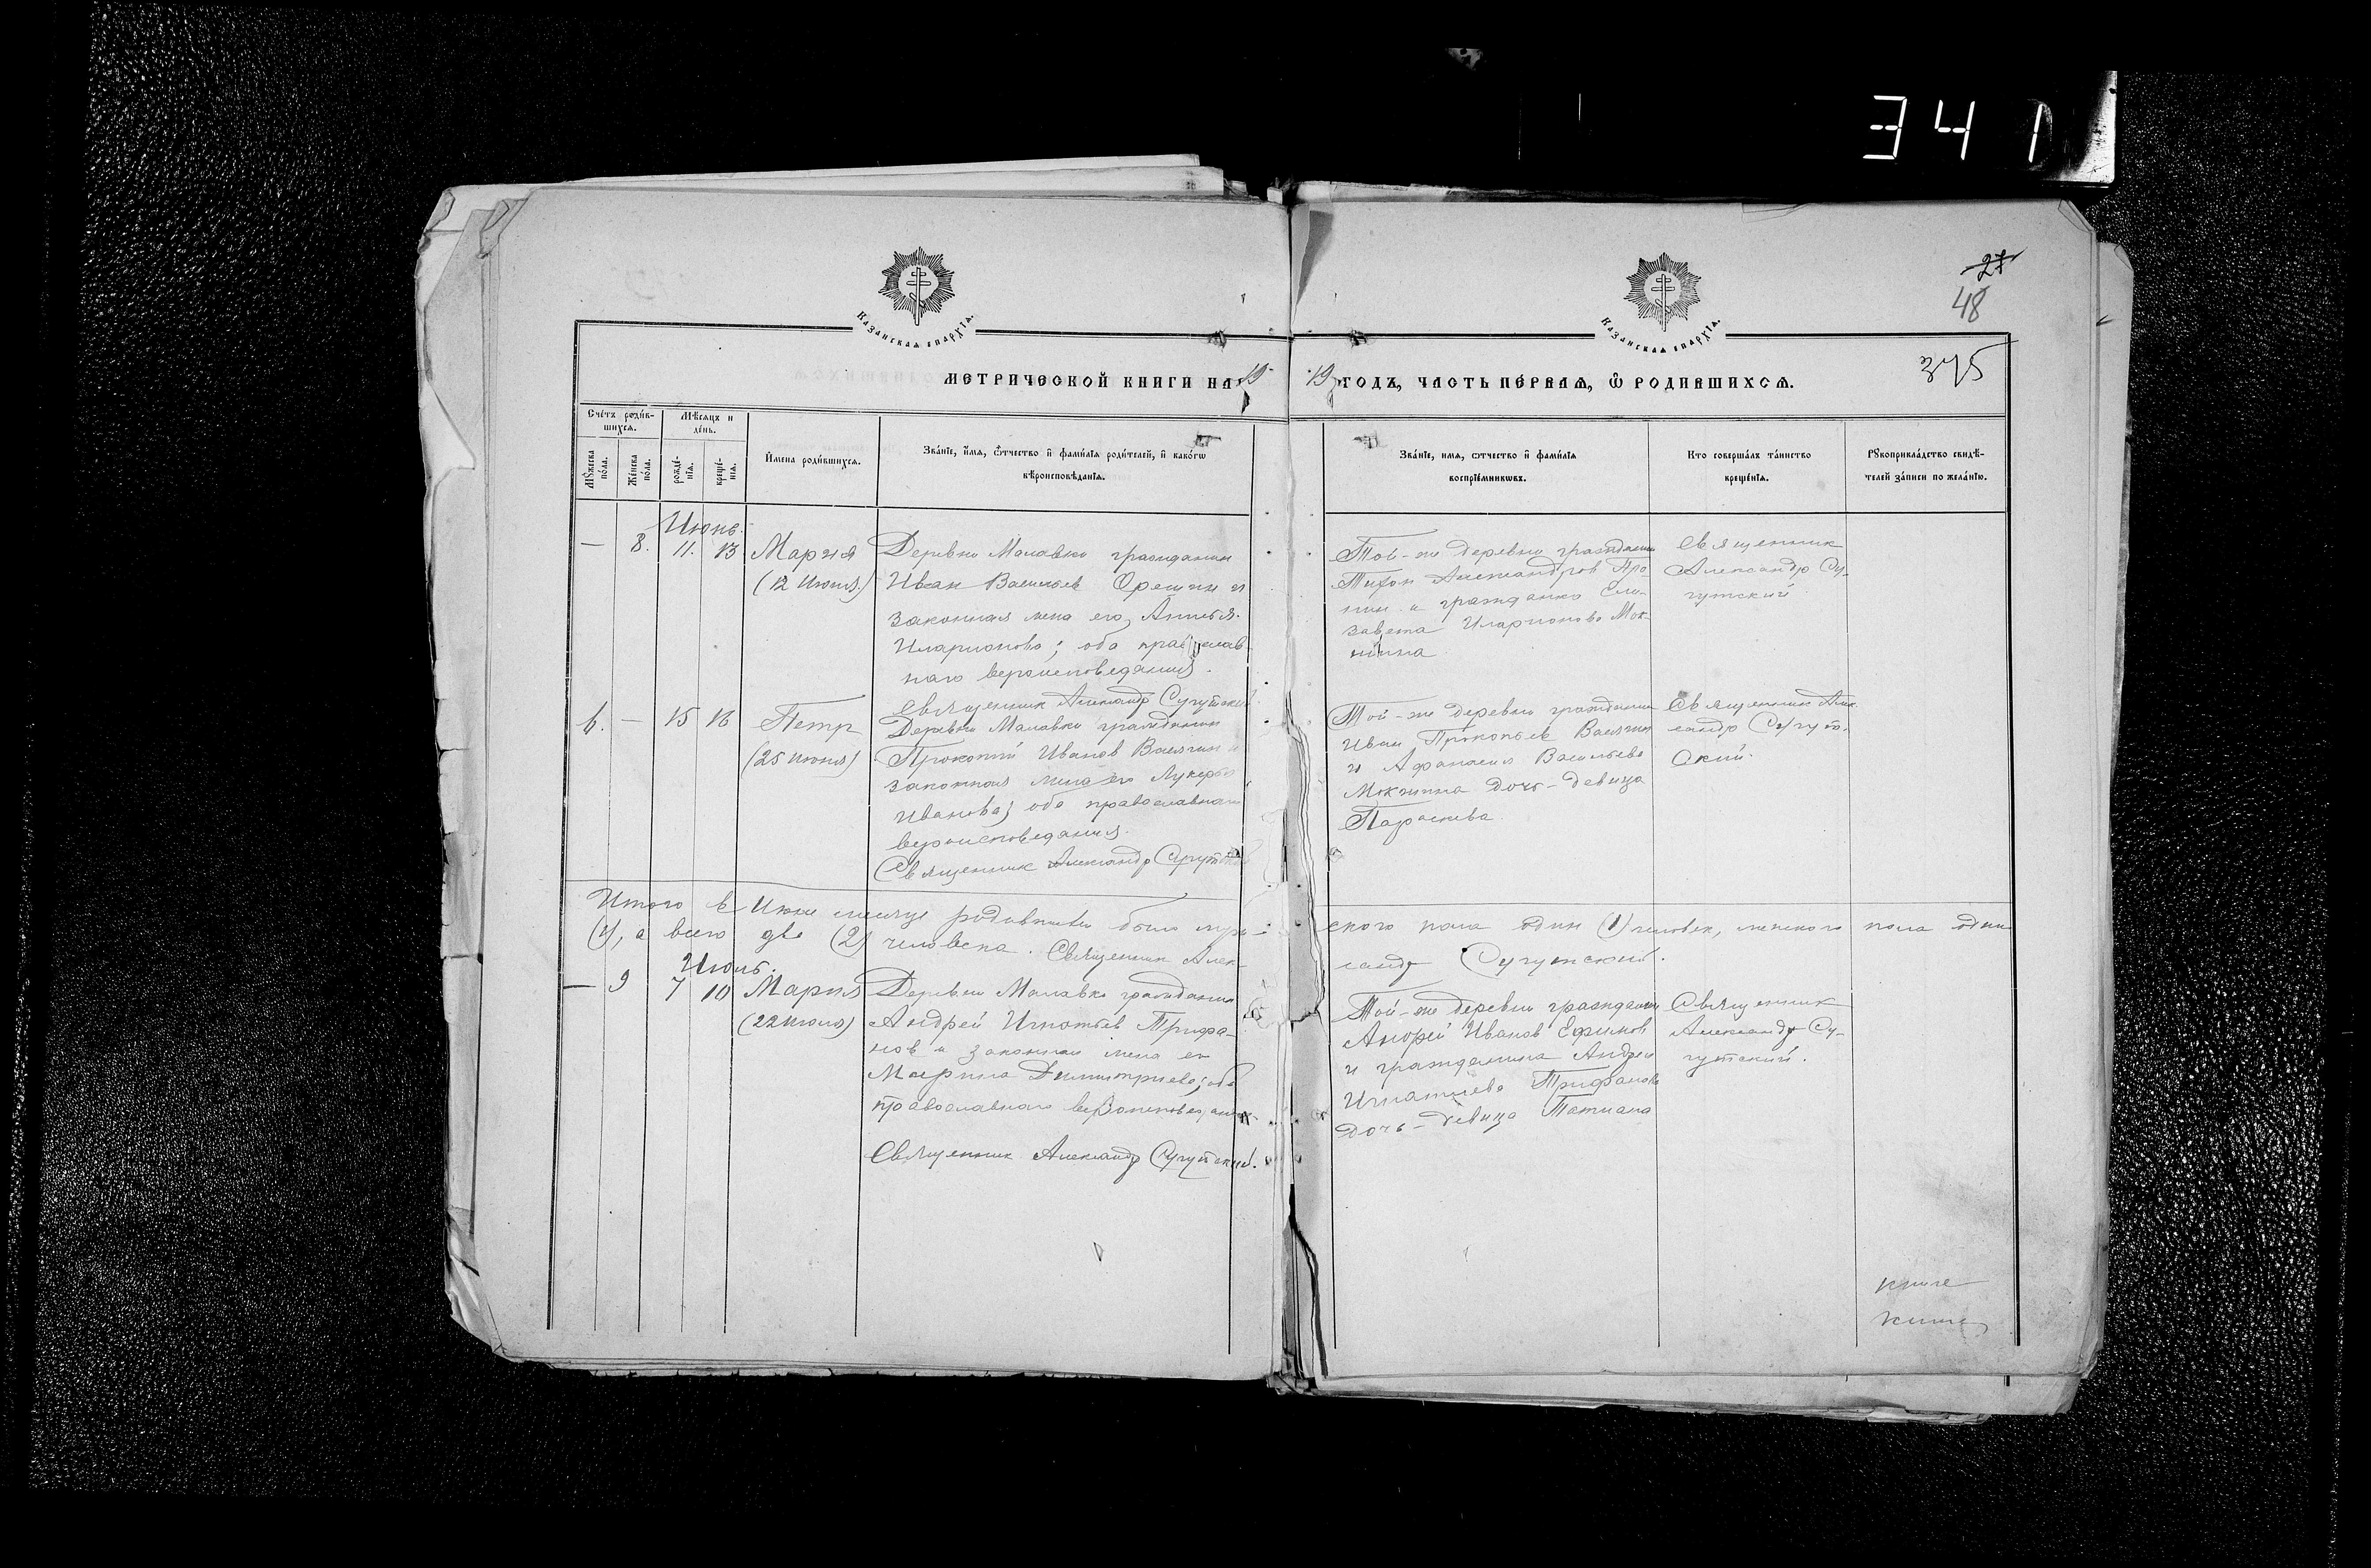 341
27
48
Казанская епархїя.
Казанская епархїя.
МЕТРИЧЕСКОЙ КНИГИ НА 19
19 ГОДЪ, ЧАСТЬ ПЕ́РВАЯ, Ѿ РОДИВШИХСЯ.
375
Сче́тъ роди́в-
шихся.
Мѣ́сяцъ и
де́нь.
Мꙋ́жеска
по́ла.
Же́нска
по́ла.
рожде́-
нїя.
креще́-
нїя.
И҆мена роди́вшихся.
Зва́нїе, и҆́мя, ѻ҆́тчество и҆ фами́лїя роди́телей, и҆ како́гѡ
вѣроисповѣ́данїя.
Зва́нїе, имя, ѻтчество и҆ фами́лїя
воспрїе́мникѡвъ.
Кто соверша́лъ та́инство
креще́нїя.
Рꙋкоприкла́дство свидѣ́-
телей за́писи по жела́нїю.
Июнь.
— 8. 11. 13 Мария
(12 Июня.)
Деревни Малавки гражданин
Иван Васильев Орешин и
законная жена его, Анисья
Иларионова; оба православ
ного вероисповедания.
Священник Александр Сугутский.
Той-же деревни гражданин
Тихон Александров Про-
нин и гражданка Ели-
завета Иларионова Мок-
шина
Священник
Александр Су-
гутский
6. — 15 16 Петр
(25 июня)
Деревни Малавки гражданин
Прокопий Иванов Васягин и
законная жена его Лукерья
Иванова; оба православного
вероисповедания.
Священник Александр Сугутский
Той-же деревни гражданин
Иван Прокопьев Васягин
и Афанасия Васильева
Мокшина дочь-девица
Параскева
Священник Алек
сандр Сугут-
ский.
Итого в Июне месяце родившихся было муж- ского пола один (1) человек, женского пола один
(1), а всего два (2) человека. Священник Алек- сандр Сугутский.
Июль.
— 9 7 10 Мария
(22 июля)
Деревни Малавки гражданин
Андрей Игнатьев Трифа-
нов и законная жена его
Марина Димитриева; оба
православного вероисповедания
Священник Александр Сугутский.
Той-же деревни гражданин
Андрей Иванов Ефимов
и гражданина Андрея
Игнатьева Трифанова
дочь-девица Татиана
Священник
Александр Су-
гутский.
книге